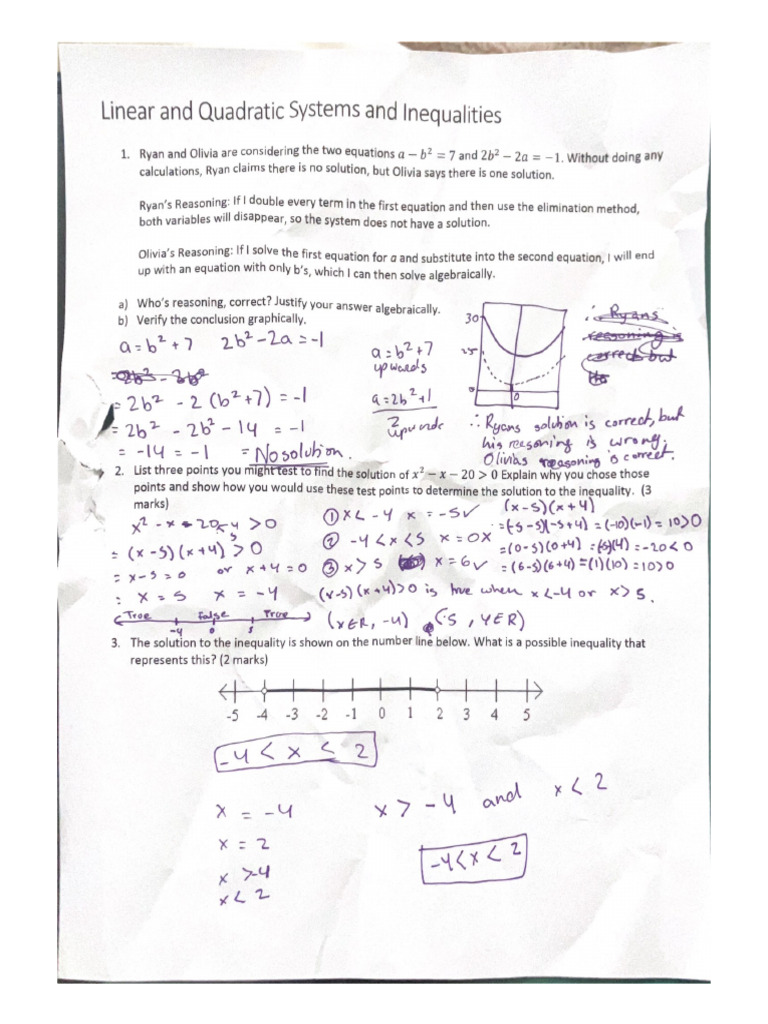 Linear and Quadratic Systems and Inequalities
1. Ryan and Olivia are considering the two equations a − b² = 7 and 2b² − 2a = −1. Without doing any
calculations, Ryan claims there is no solution, but Olivia says there is one solution.
Ryan's Reasoning: If I double every term in the first equation and then use the elimination method,
both variables will disappear, so the system does not have a solution.
Olivia's Reasoning: If I solve the first equation for a and substitute into the second equation, I will end
up with an equation with only b's, which I can then solve algebraically.
a) Who's reasoning, correct? Justify your answer algebraically.
b) Verify the conclusion graphically.
a = b² + 7 2b² − 2a = −1
= 2b² − 2(b² + 7) = −1
= 2b² − 2b² − 14 = −1
= −14 = −1 = No solution.
a = b² + 7
upwards
a = 2b² + 1
2
upwards
30
0
∴ Ryans
reasoning is
correct but
∴ Ryans solution is correct, but
his reasoning is wrong.
Olivias reasoning is correct.
2. List three points you might test to find the solution of x² − x − 20 > 0 Explain why you chose those
points and show how you would use these test points to determine the solution to the inequality. (3
marks)
x² − x − 20 > 0
= (x − 5)(x + 4) > 0
= x − 5 = 0 or x + 4 = 0
: x = 5 x = −4
True false True
−4 0 5
(x − 5)(x + 4)
① x < −4 x = −5 ✓ = (−5 − 5)(−5 + 4) = (−10)(−1) = 10 > 0
② −4 < x < 5 x = 0 X = (0 − 5)(0 + 4) = (−5)(4) = −20 < 0
③ x > 5 x = 6 ✓ = (6 − 5)(6 + 4) = (1)(10) = 10 > 0
(x − 5)(x + 4) > 0 is true when x < −4 or x > 5.
(xER, −4) (5, YER)
3. The solution to the inequality is shown on the number line below. What is a possible inequality that
represents this? (2 marks)
-5 -4 -3 -2 -1 0 1 2 3 4 5
−4 < x < 2
x = −4
x = 2
x > −4
x < 2
x > −4 and x < 2
−4 < x < 2